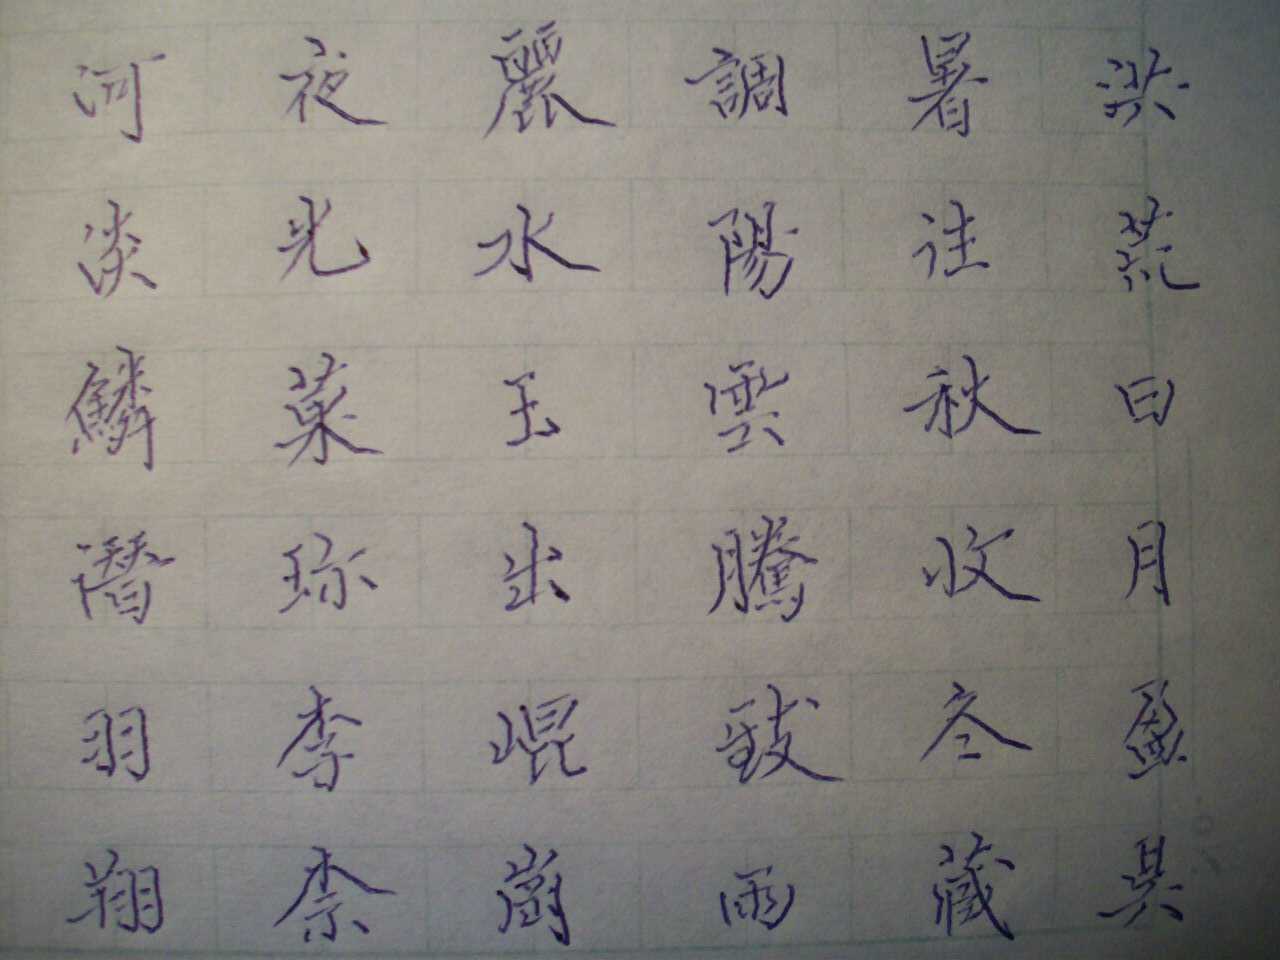 洪荒日月盈昃
暑往秋收冬藏
調陽雲騰致雨
麗水玉出崐崗
夜光菓珎李柰
河淡鱗潛羽翔